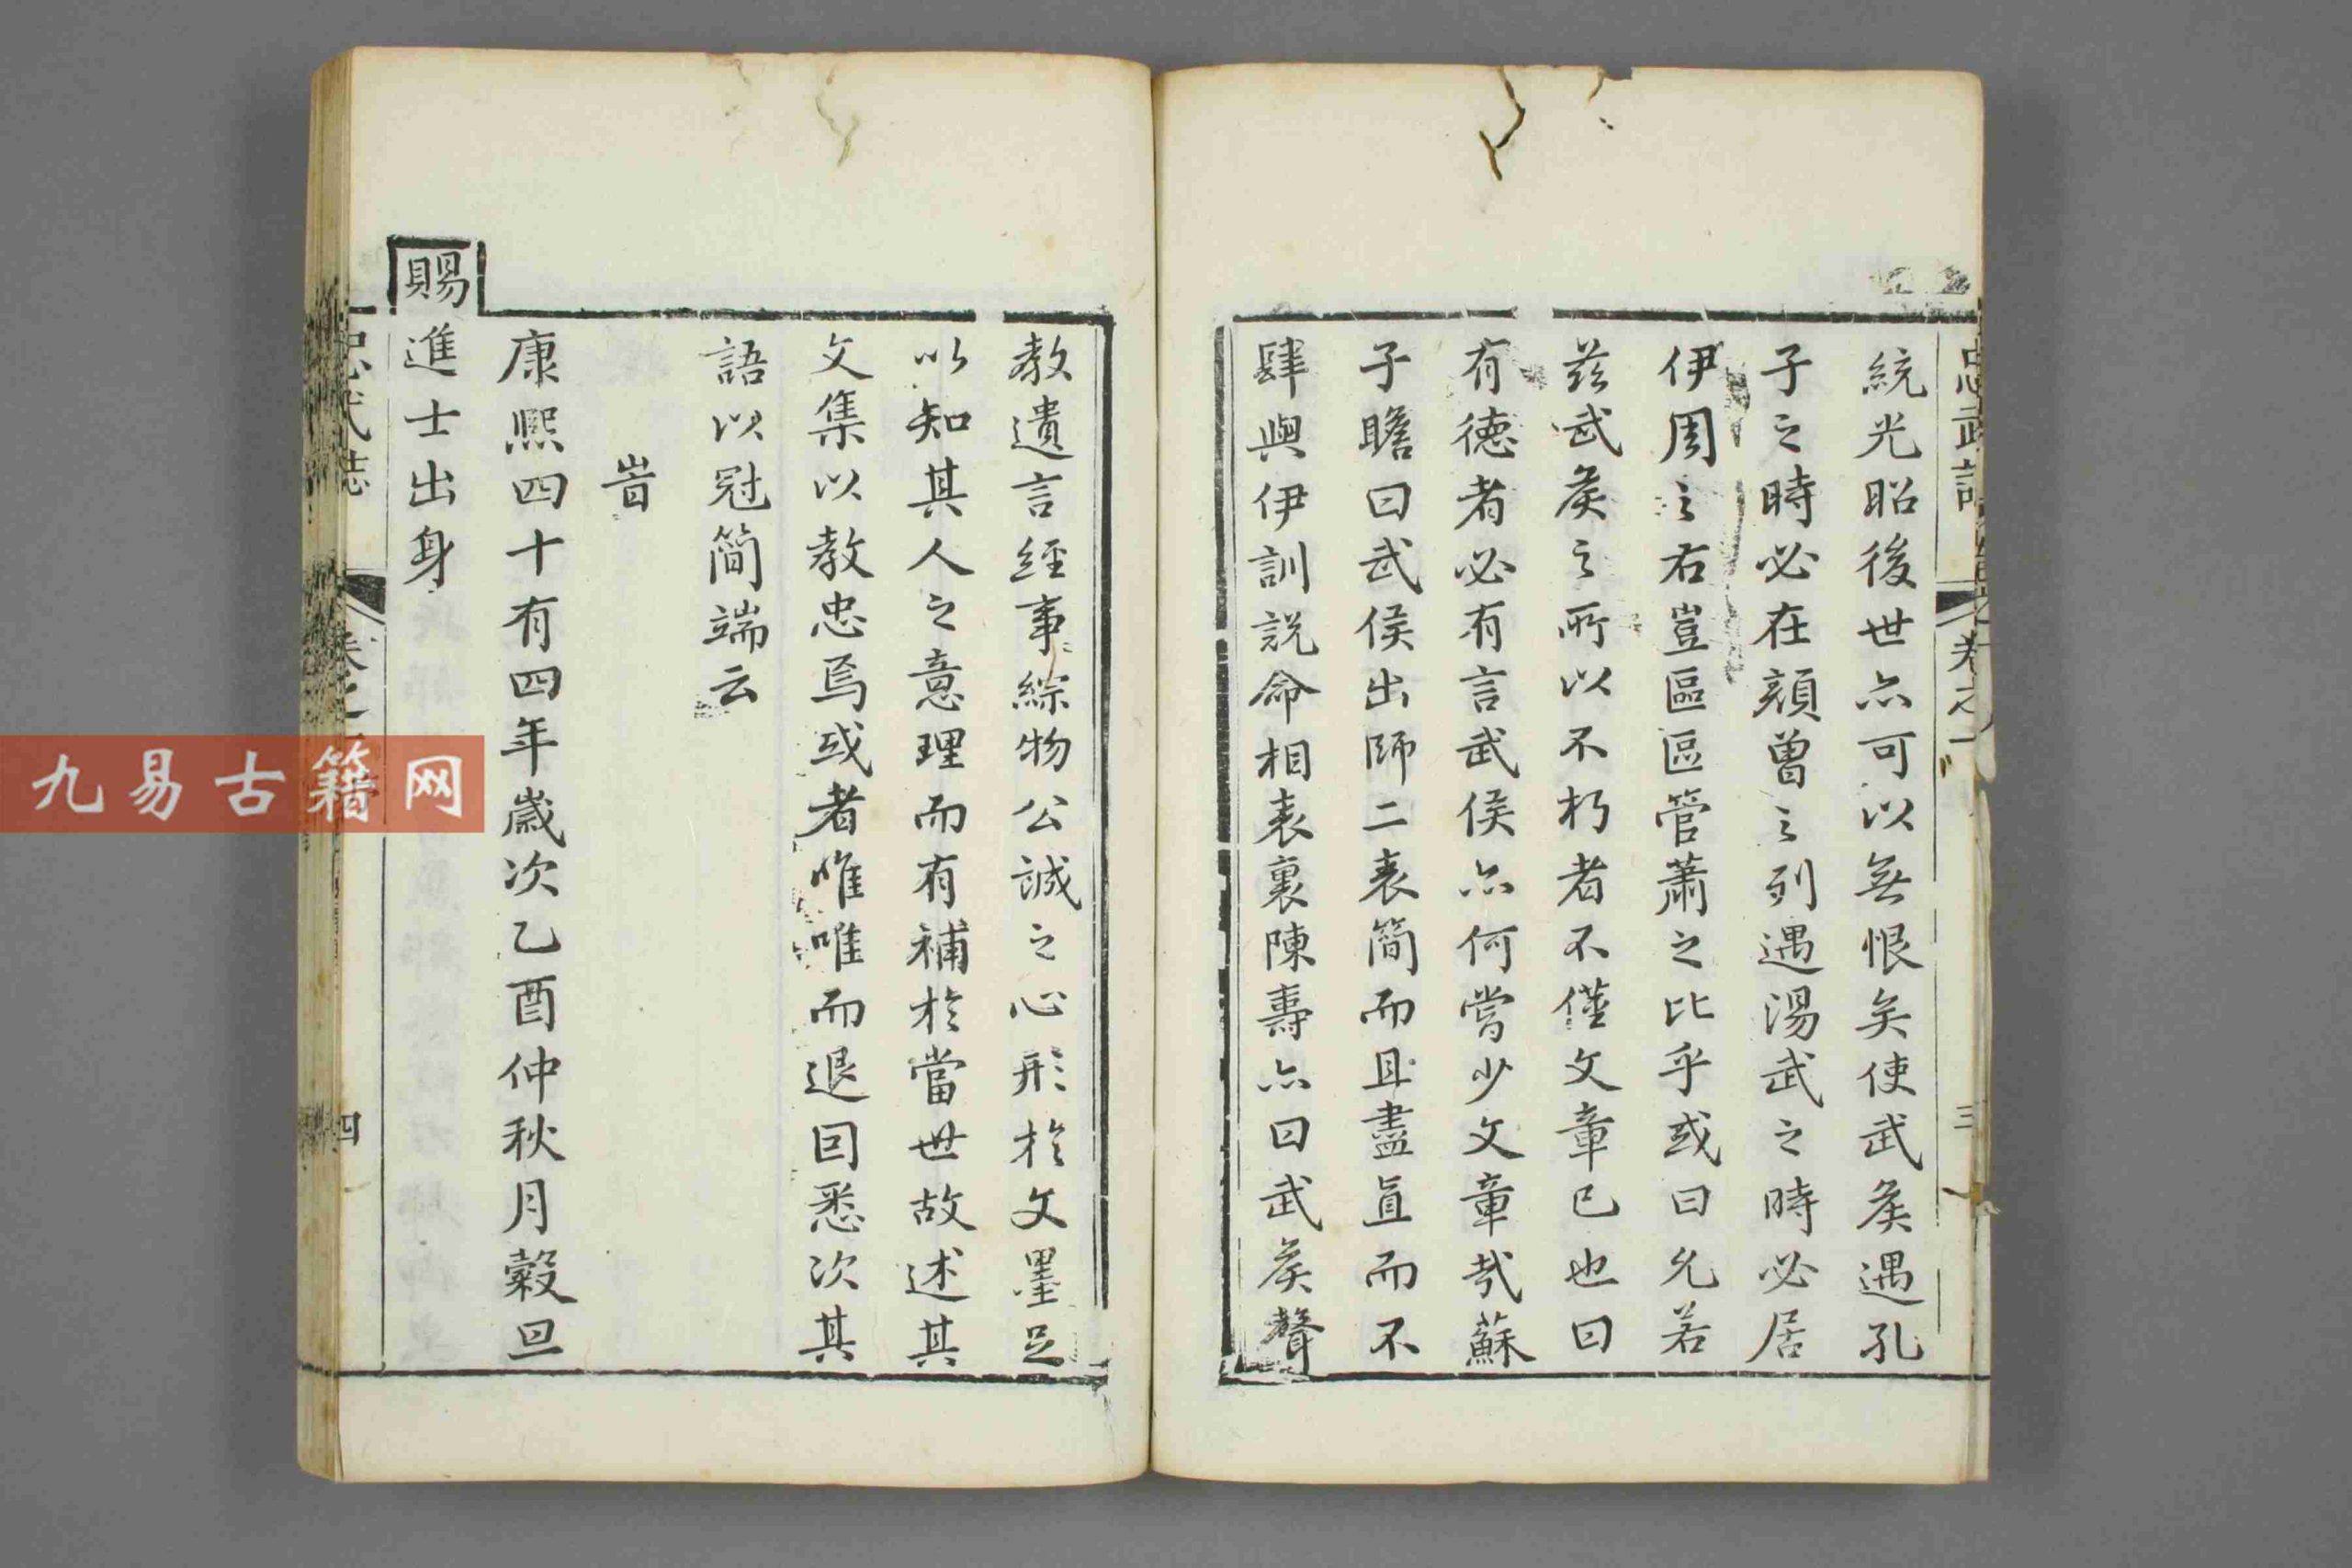 忠武誌
卷之一
三
統光昭後世亦可以無恨矣使武矦遇孔
子之時必在顔曽之列遇湯武之時必居
伊周之右豈區區管蕭之比乎或曰允若
茲武矦之所以不朽者不僅文章已也曰
有徳者必有言武侯亦何嘗少文章哉蘇
子瞻曰武侯出師二表簡而且盡直而不
肆與伊訓説命相表裏陳壽亦曰武矦聲
教遺言經事綜物公誠之心形於文墨足
以知其人之意理而有補於當世故述其
文集以教忠焉或者唯唯而退回悉次其
語以冠簡端云
旹
康熙四十有四年歲次乙酉仲秋月穀旦
賜
進士出身
忠武誌
卷之一
四
九易古籍网